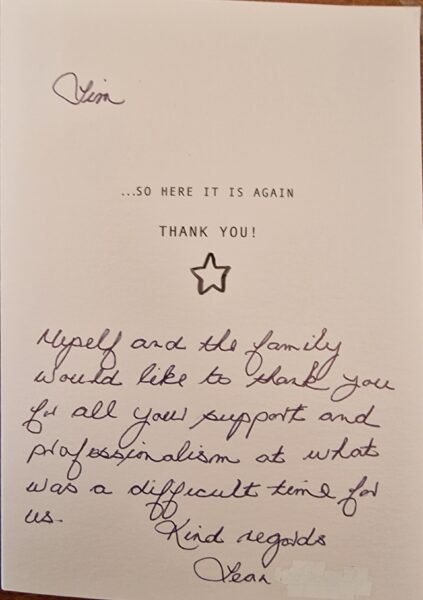 Tim
...SO HERE IT IS AGAIN
THANK YOU!
Myself and the family
would like to thank you
for all your support and
professionalism at what
was a difficult time for
us.
Kind regards
Jean